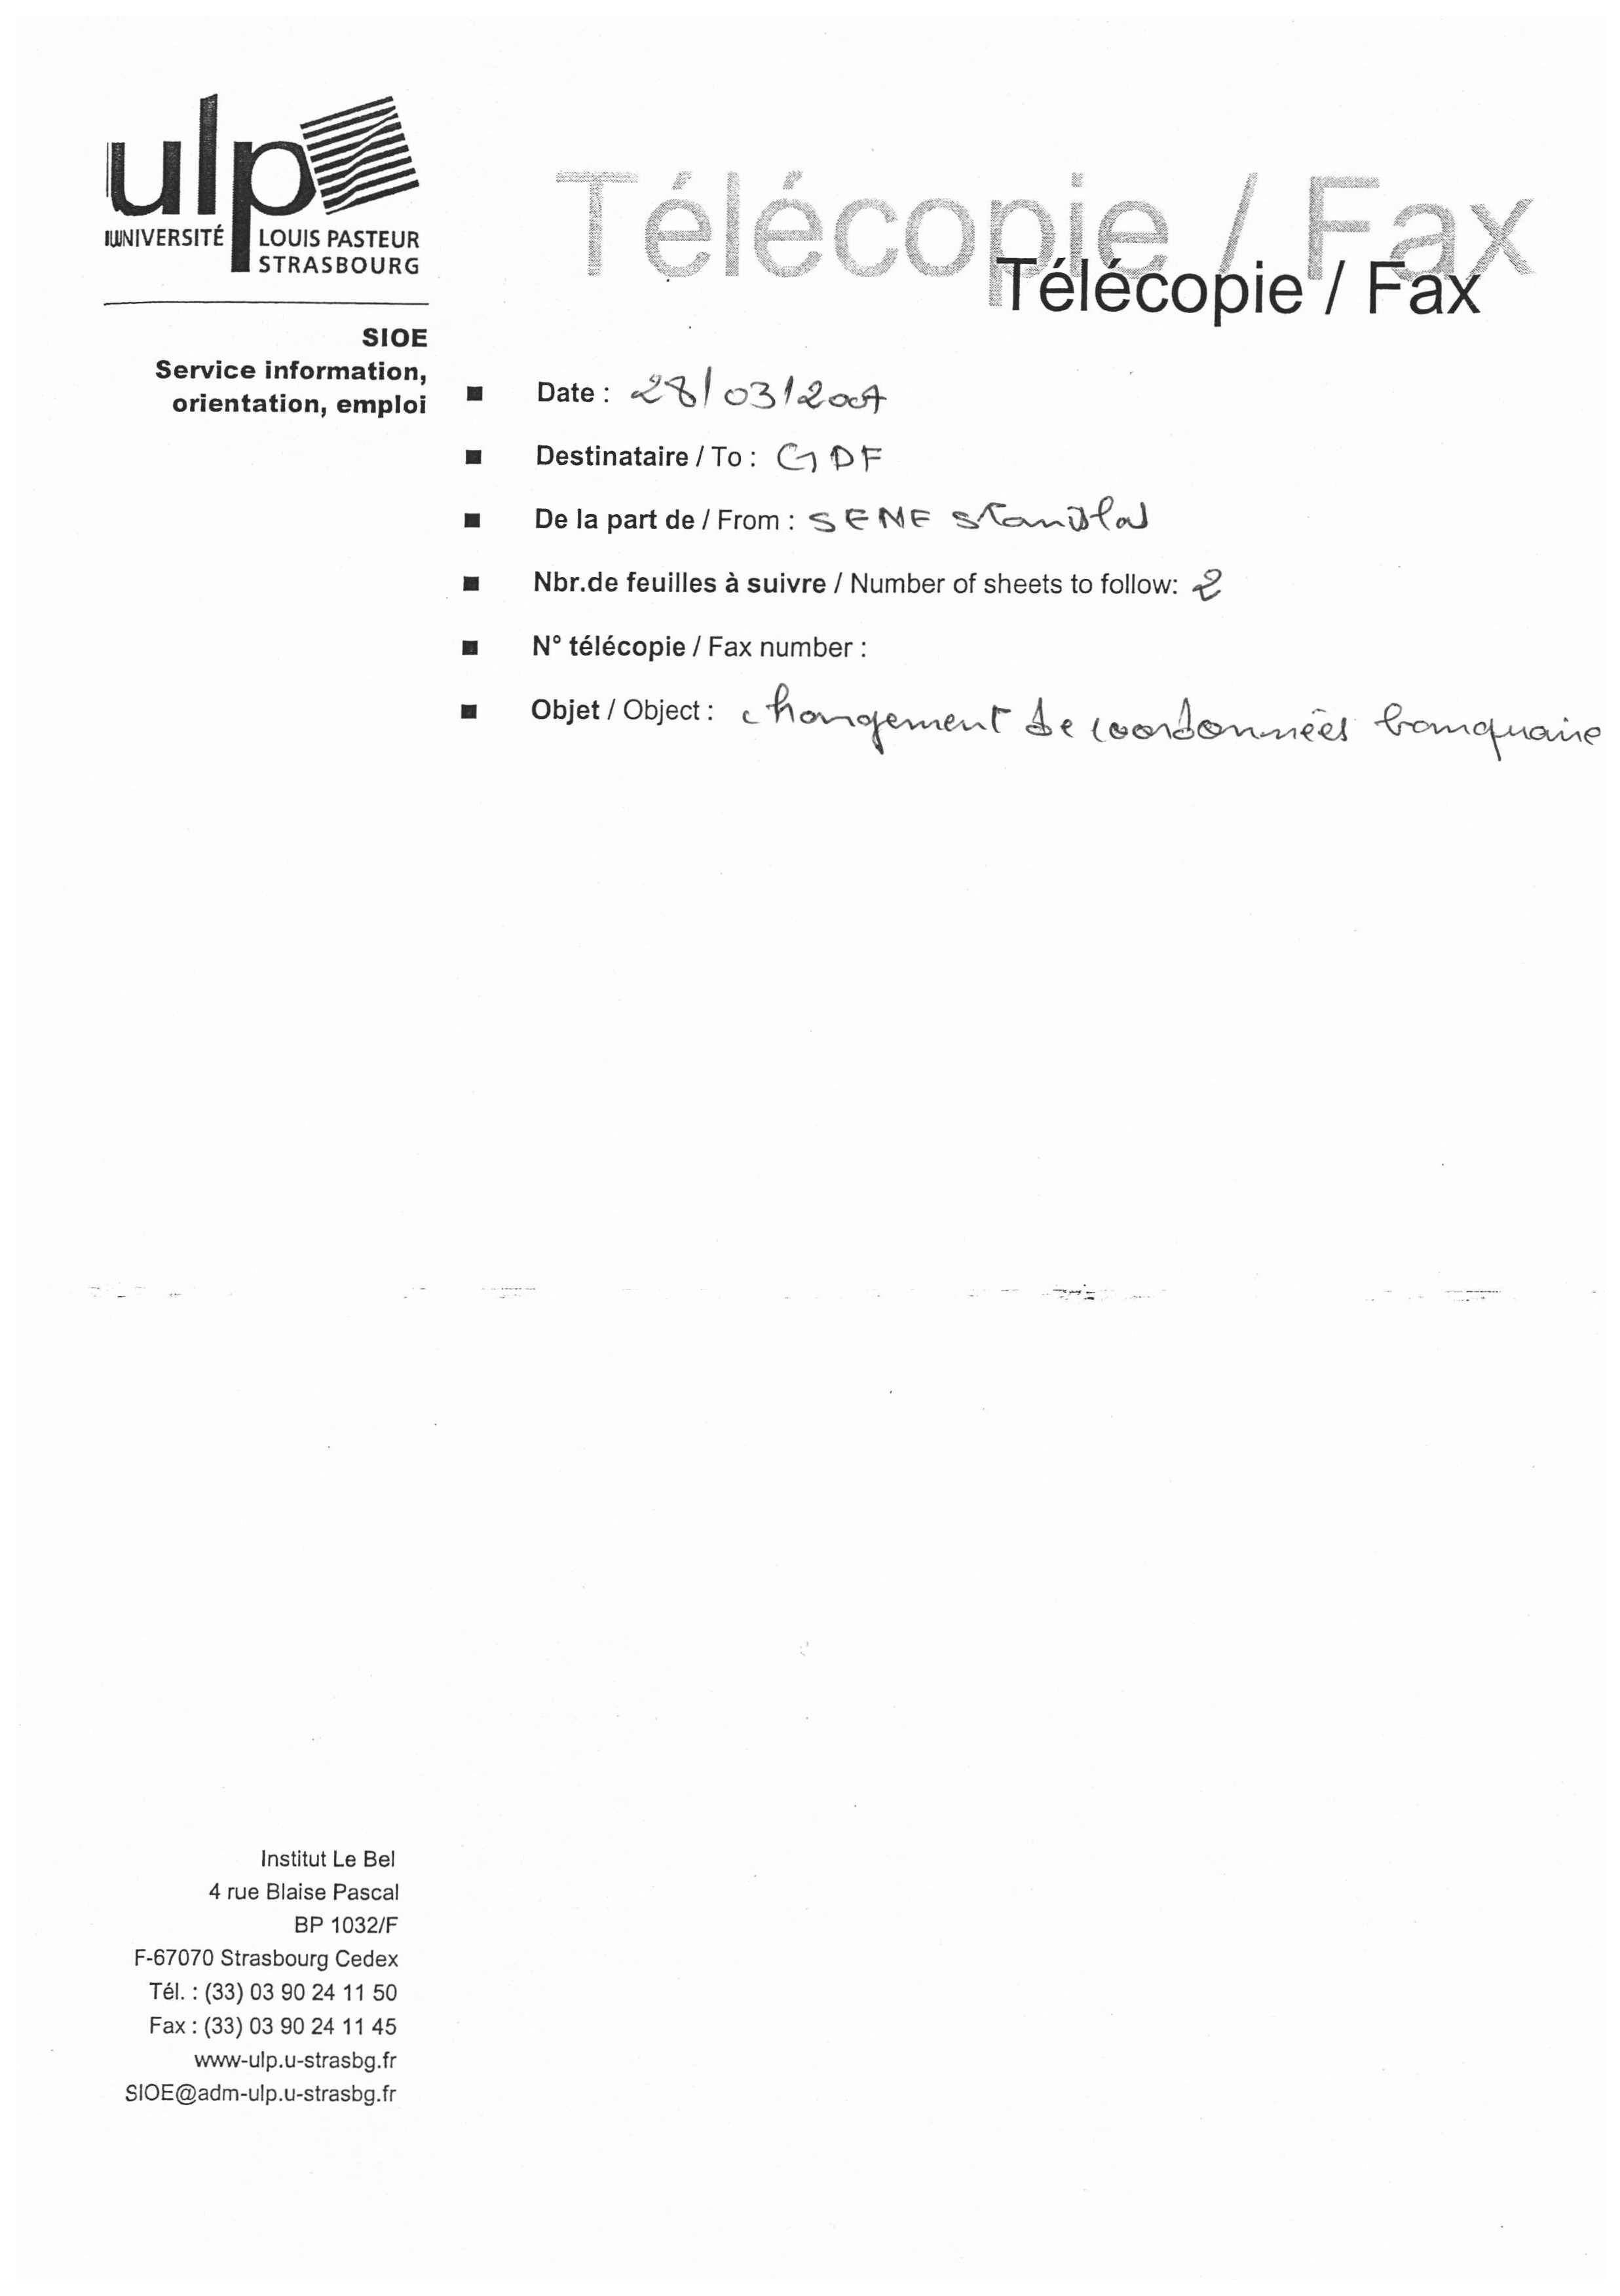 ulp
UNIVERSITÉ LOUIS PASTEUR
STRASBOURG
Télécopie / Fax
Télécopie / Fax
SIOE
Service information,
orientation, emploi
Date : 28/03/2007
Destinataire / To : GDF
De la part de / From : SENE Stanislas
Nbr.de feuilles à suivre / Number of sheets to follow: 2
N° télécopie / Fax number :
Objet / Object : changement de coordonnées banquaire
Institut Le Bel
4 rue Blaise Pascal
BP 1032/F
F-67070 Strasbourg Cedex
Tél. : (33) 03 90 24 11 50
Fax : (33) 03 90 24 11 45
www-ulp.u-strasbg.fr
SIOE@adm-ulp.u-strasbg.fr